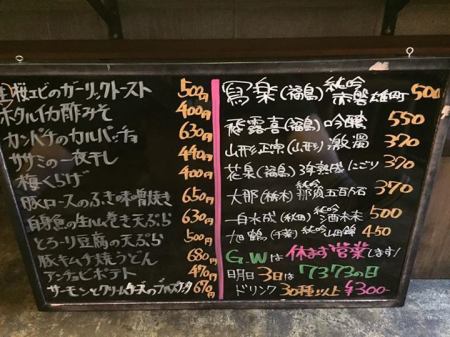 生桜エビのガーリックトースト 500円
ホタルイカ酢みそ 400円
カンパチのカルパッチョ 630円
ササミの一夜干し 440円
梅くらげ 400円
豚ロースのふき味噌焼き 650円
白身魚の生ハム巻き天ぷら 630円
とろーり豆腐の天ぷら 500円
豚キムチ焼うどん 680円
アンチョビポテト 470円
サーモンとクリームチーズのブルスケッタ 670円
寫楽(福島)純吟 赤磐雄町 500
飛露喜(福島)吟醸 550
山形正宗(山形) 370
花泉(福島)3年熟成にごり 370
大那(栃木)純吟 那須五百石 370
白水成(秋田)純吟 酒未来 500
旭鶴(千葉)純吟山田錦 450
G.Wは休まず営業します!
明日3日は7373の日
ドリンク30種以上¥300-